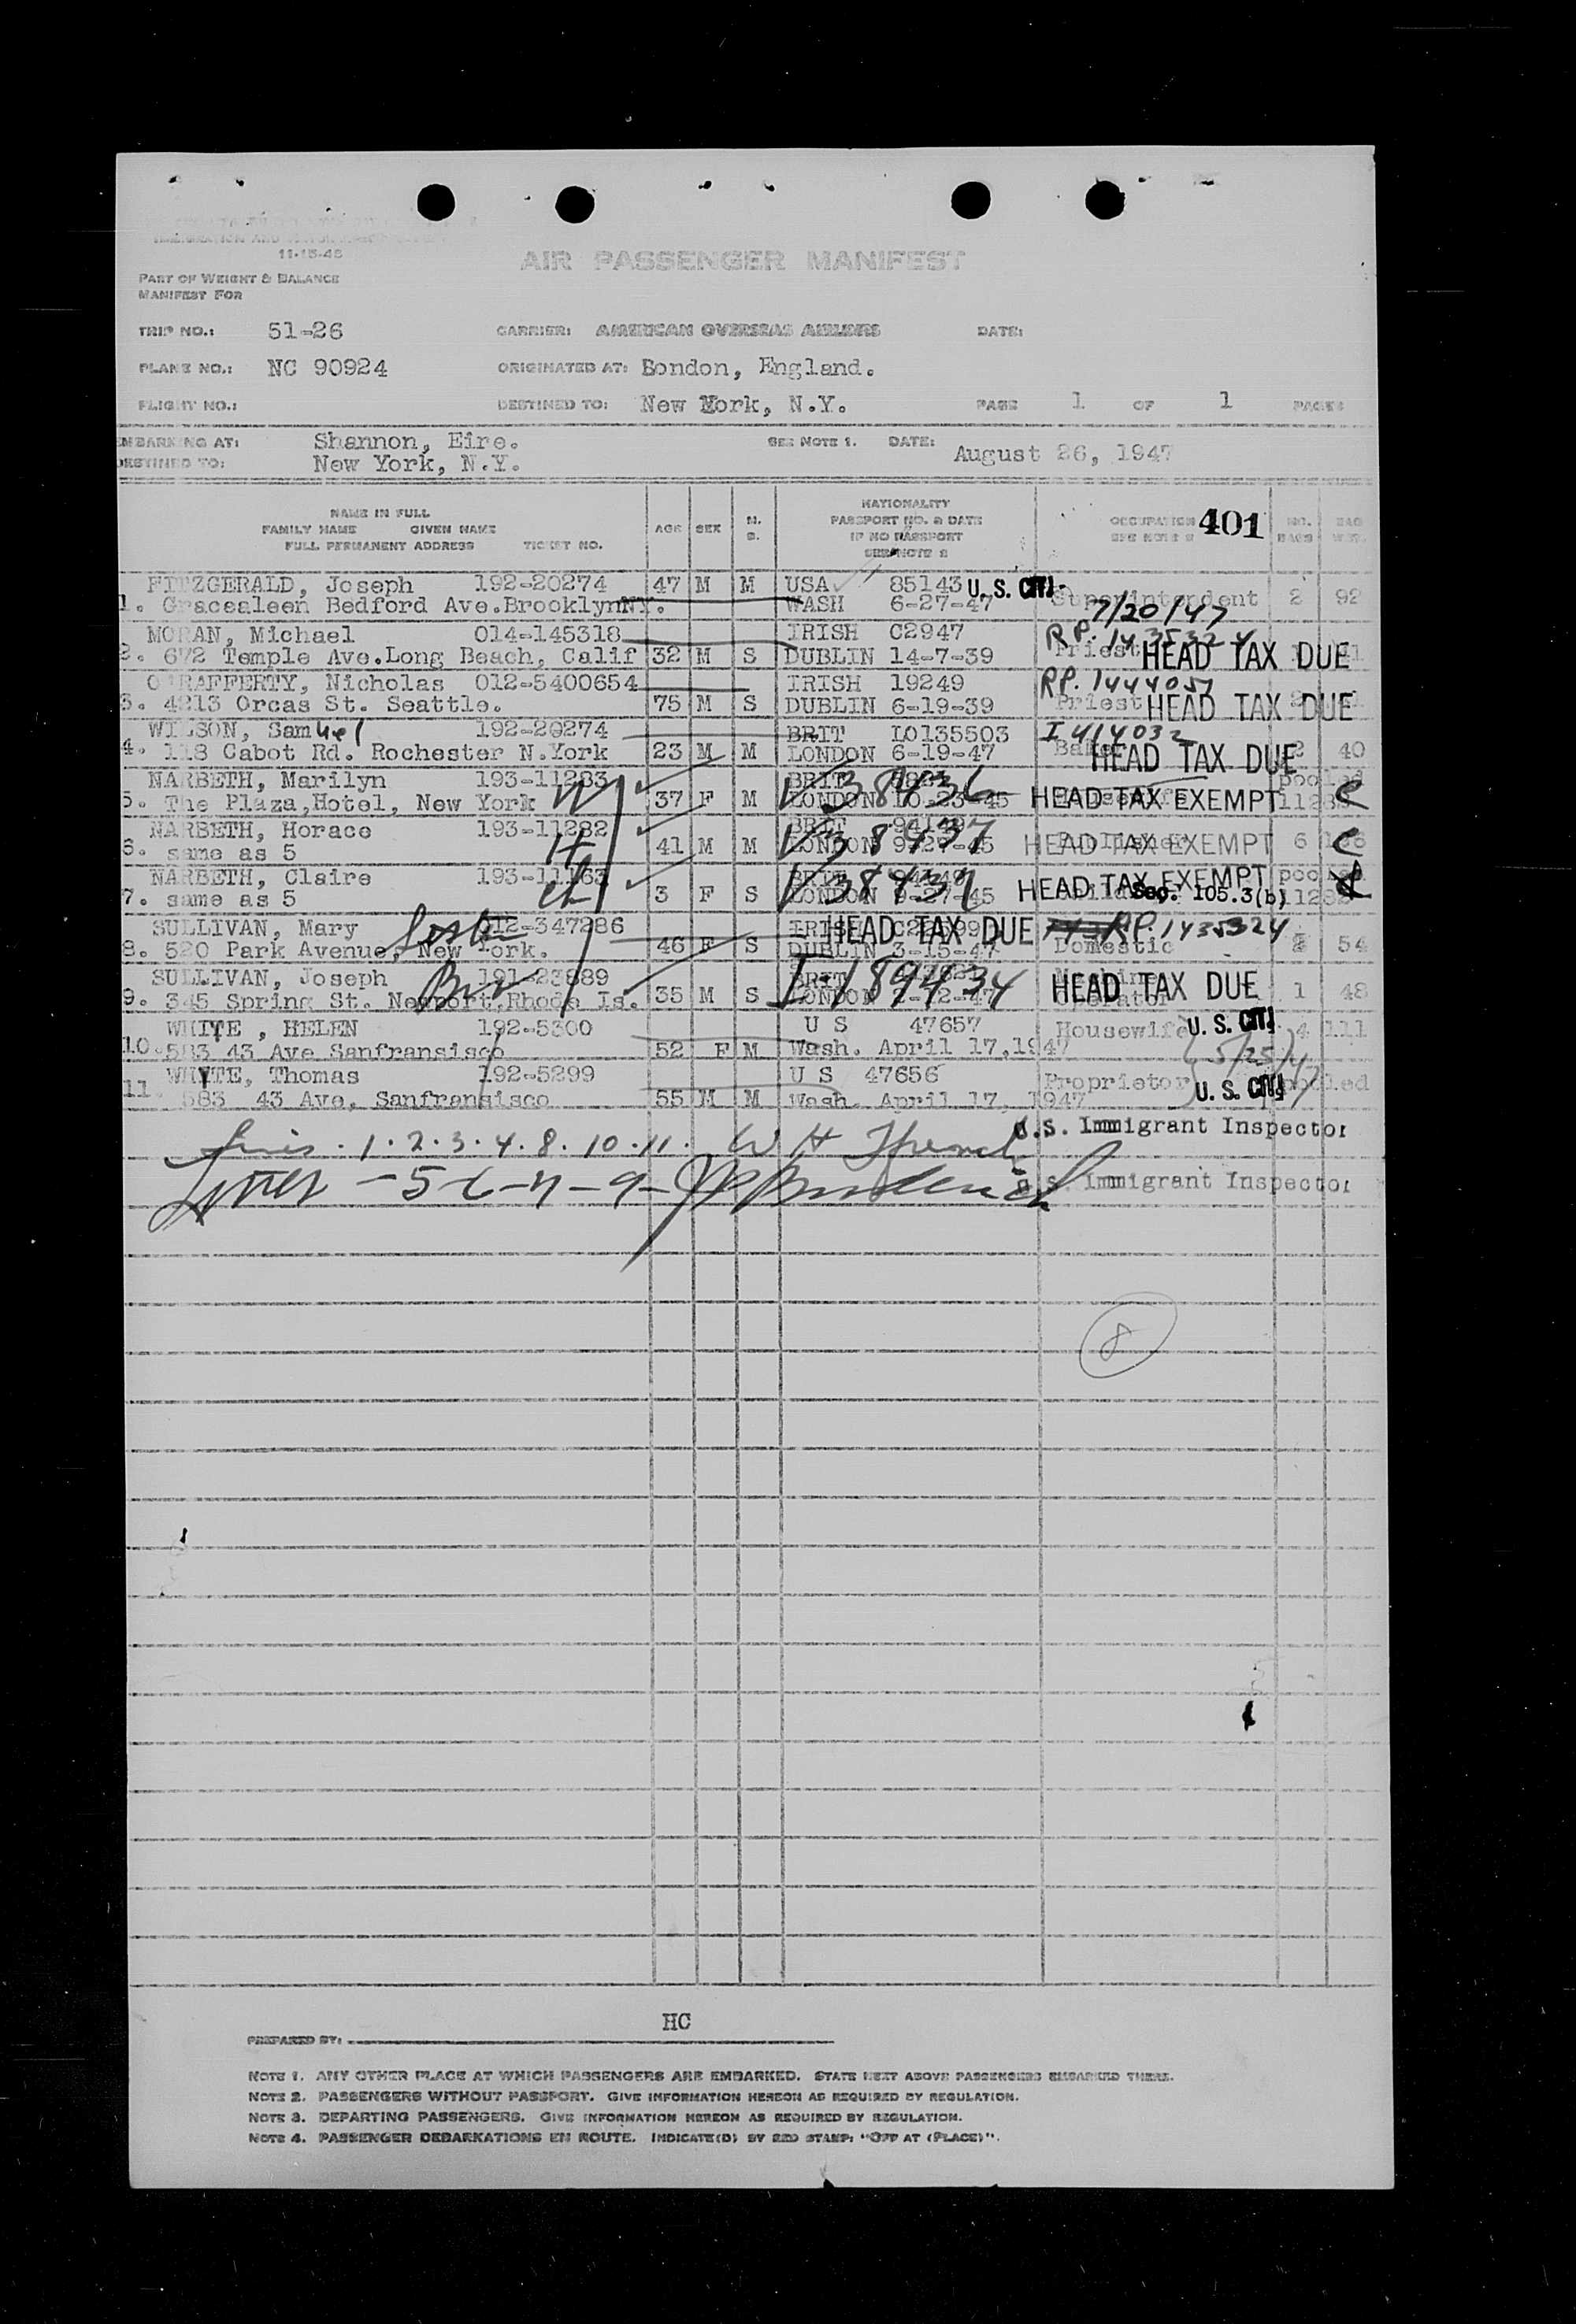 11-15-46
AIR PASSENGER MANIFEST
PART OF WEIGHT & BALANCE
MANIFEST FOR
TRIP NO.: 51-26 CARRIER: AMERICAN OVERSEAS AIRLINES DATE:
PLANE NO.: NC 90924 ORIGINATED AT: Bondon, England.
FLIGHT NO.: DESTINED TO: New York, N.Y. PAGE 1 OF 1 PAGES
EMBARKING AT: Shannon, Eire. SEE NOTE 1. DATE: August 26, 1947
DESTINED TO: New York, N.Y.
NAME IN FULL
FAMILY NAME GIVEN NAME
FULL PERMANENT ADDRESS TICKET NO.
AGE SEX M. S.
NATIONALITY
PASSPORT NO. & DATE
IF NO PASSPORT
SEE NOTE 2
OCCUPATION 401
SEE NOTE
NO. BAGS
BAG WGT.
FITZGERALD, Joseph 192-20274 47 M M USA 85143 U.S. CIT.
1. Gracealeen Bedford Ave.BrooklynNY. WASH 6-27-47 Superintendent 2 92
7/20/47
MORAN, Michael 014-145318 IRISH C2947 R.P.
2. 672 Temple Ave.Long Beach, Calif 32 M S DUBLIN 14-7-39 Priest HEAD TAX DUE
O'RAFFERTY, Nicholas 012-5400654 IRISH 19249 RP. 1444051
3. 4213 Orcas St. Seattle. 75 M S DUBLIN 6-19-39 Priest HEAD TAX DUE
WILSON, Samuel 192-20274 BRIT L0135503 I 414032
4. 118 Cabot Rd. Rochester N.York 23 M M LONDON 6-19-47 HEAD TAX DUE 2 40
NARBETH, Marilyn 193-11283 BRIT V38436 pooled
5. The Plaza,Hotel, New York W 37 F M LONDON 10-23-45 HEAD TAX EXEMPT
NARBETH, Horace 193-11282 BRIT V38437
6. same as 5 H 41 M M LONDON 9-27-45 HEAD TAX EXEMPT 6
NARBETH, Claire 193-11163 BRIT
7. same as 5 ch 3 F S LONDON 9-27-45 HEAD TAX EXEMPT Sec. 105.3(b)
SULLIVAN, Mary 012-347286 IRISH HEAD TAX DUE R.P. 1435324
8. 520 Park Avenue, New York. 46 F S DUBLIN 3-15-47 Domestic 2 54
SULLIVAN, Joseph 191-23889 BRIT I-1894934 HEAD TAX DUE
9. 345 Spring St. Newport,Rhode Is. 35 M S LONDON Operator 1 48
WHITE , HELEN 192-5300 U S 47657 Housewife U.S. CIT. 4 111
10. 583 43 Ave Sanfransisco 52 F M Wash. April 17,1947 5/25/47
WHYTE, Thomas 192-5299 U S 47656 Proprietor pooled
11. 583 43 Ave, Sanfransisco 55 M M Wash. April 17, 1947 U.S. CIT.
1.2.3.4.8.10.11. W H French U.S. Immigrant Inspector
-5-6-7-9- U.S. Immigrant Inspector
8
HC
PREPARED BY:
NOTE 1. ANY OTHER PLACE AT WHICH PASSENGERS ARE EMBARKED. STATE NEXT ABOVE PASSENGERS EMBARKED THERE.
NOTE 2. PASSENGERS WITHOUT PASSPORT. GIVE INFORMATION HEREON AS REQUIRED BY REGULATION.
NOTE 3. DEPARTING PASSENGERS. GIVE INFORMATION HEREON AS REQUIRED BY REGULATION.
NOTE 4. PASSENGER DEBARKATIONS EN ROUTE. INDICATE(D) BY RED STAMP: "OFF AT (PLACE)".